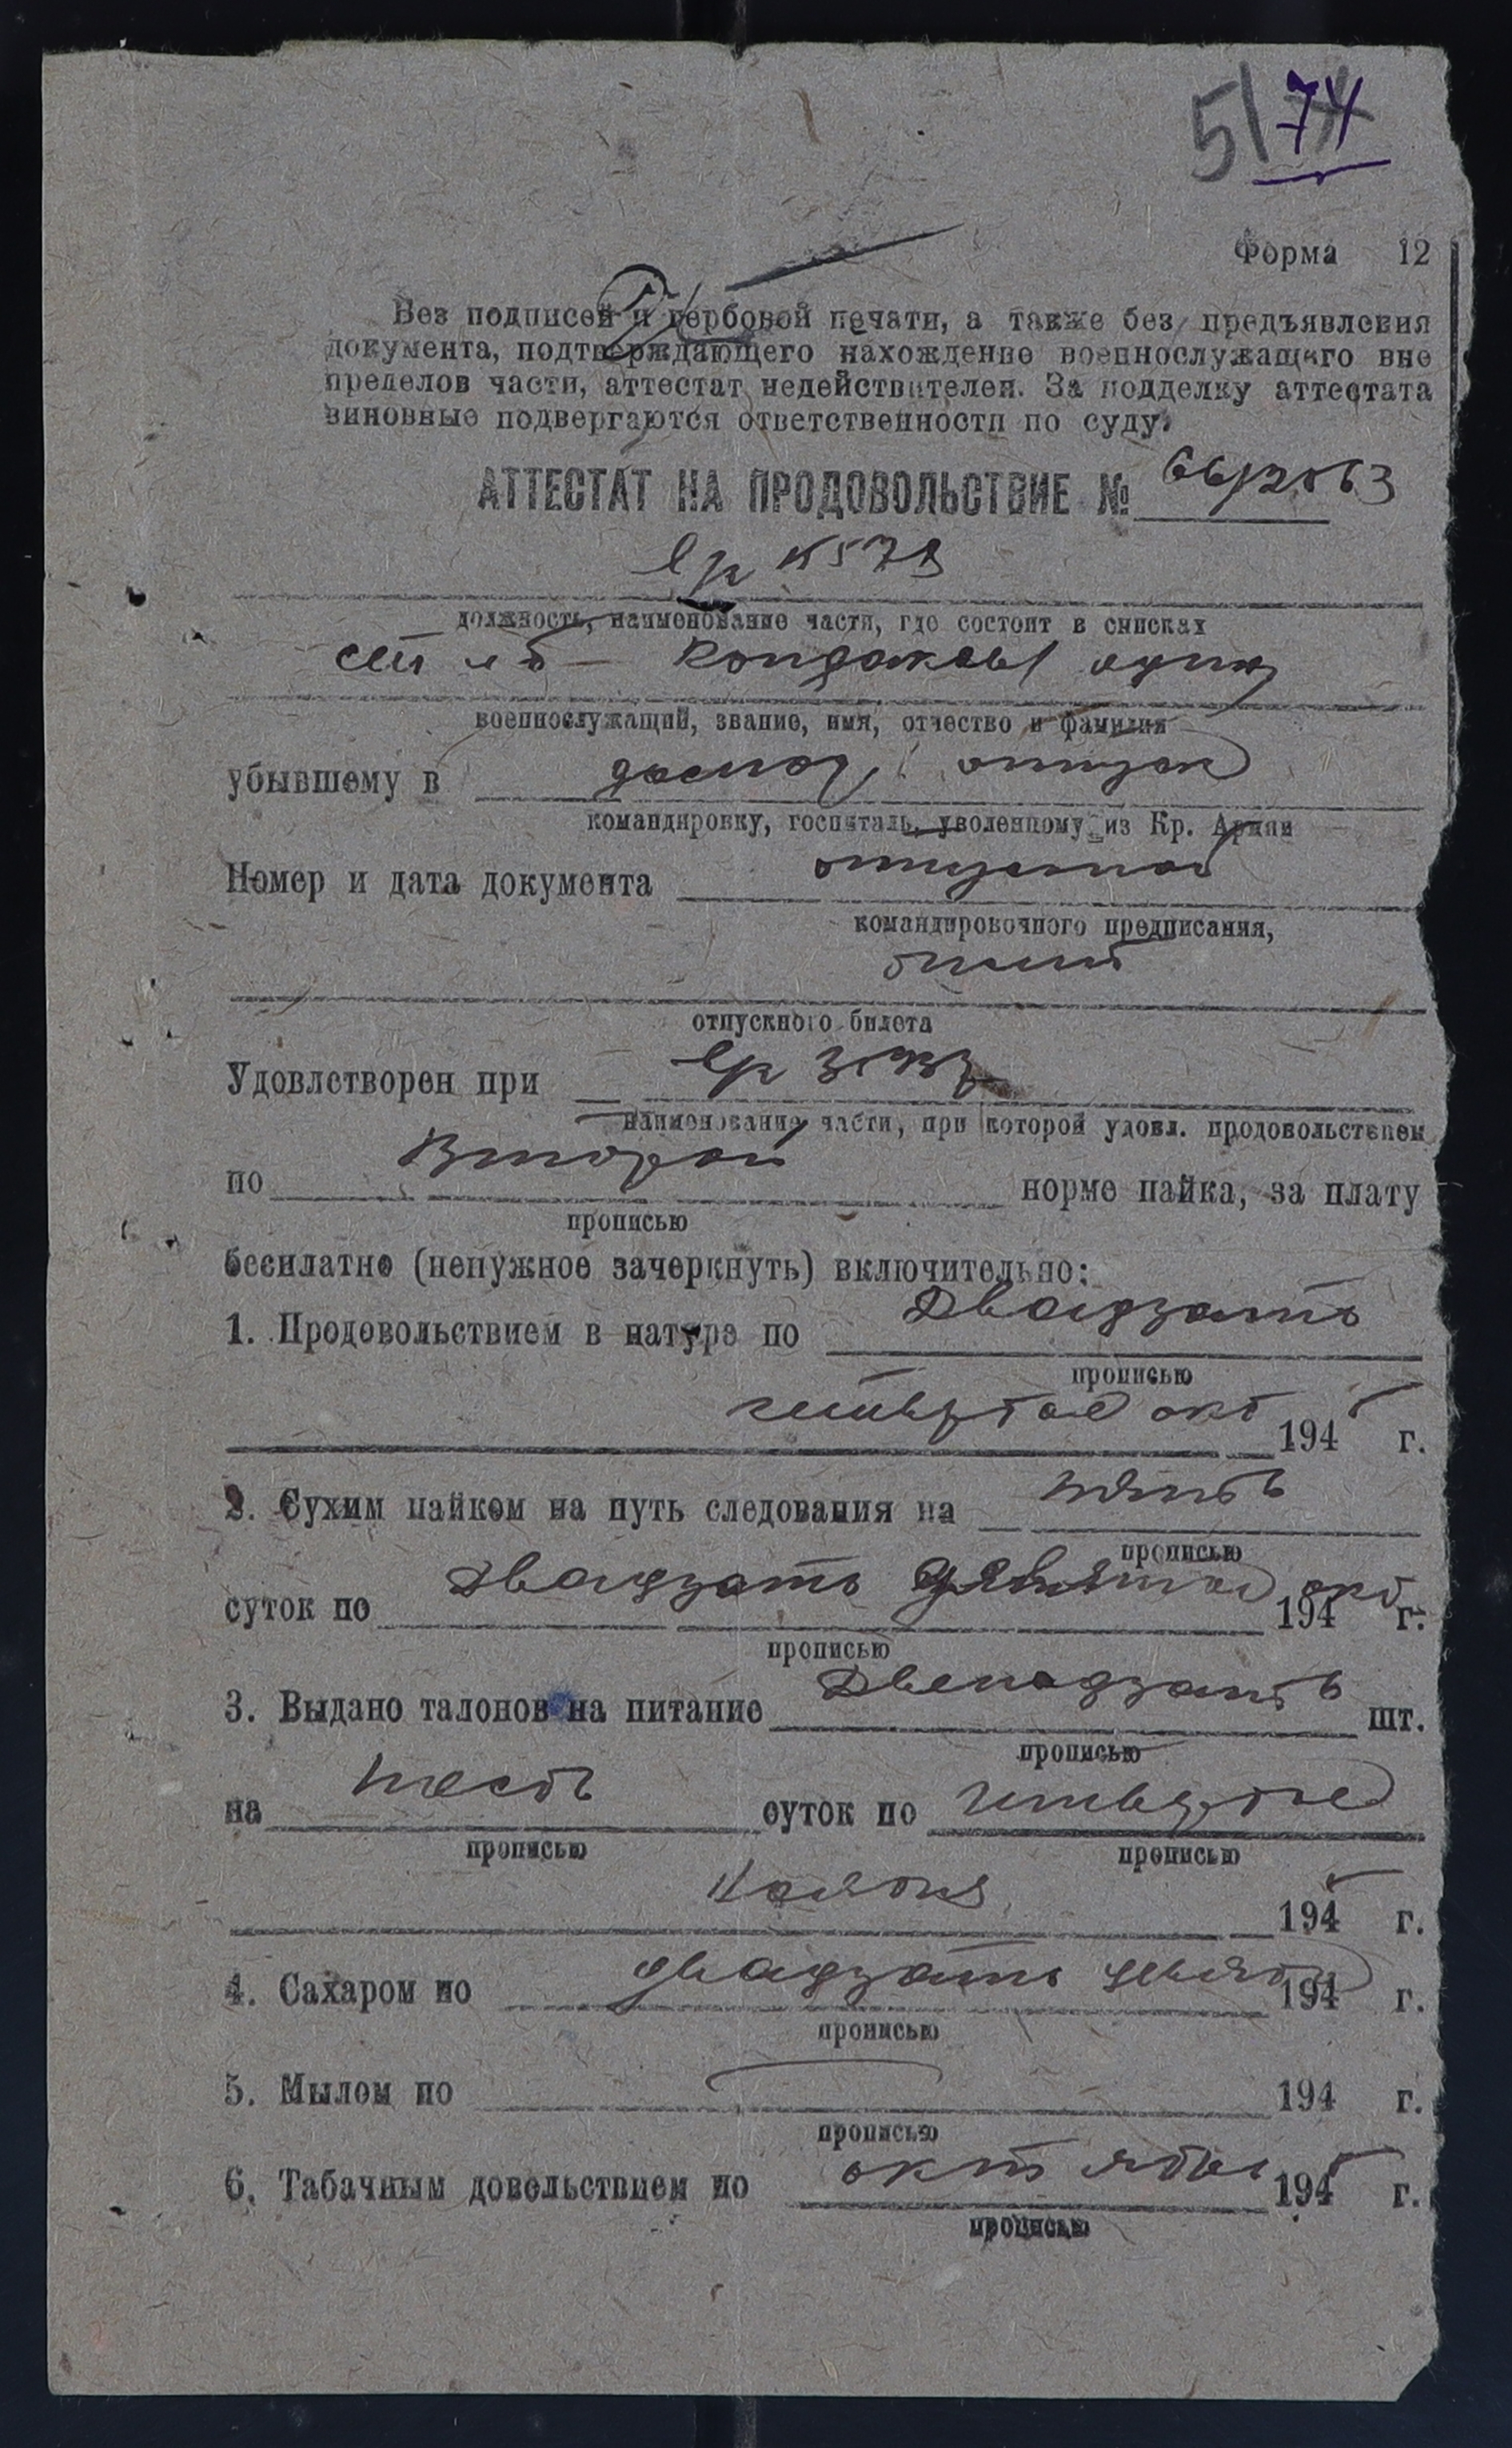 51 74
Форма 12
Без подписей и гербовой печати, а также без предъявления
документа, подтверждающего нахождение военнослужащего вне
пределов части, аттестат недействителен. За подделку аттестата
виновные подвергаются ответственности по суду.
АТТЕСТАТ НА ПРОДОВОЛЬСТВИЕ №
должность, наименование части, где состоит в списках
военнослужащий, звание, имя, отчество и фамилия
убывшему в отпуск
командировку, госпиталь, уволенному из Кр. Армии
Номер и дата документа отпускной
командировочного предписания,
билет
отпускного билета
Удовлетворен при
наименование части, при которой удовл. продовольствием
по Второй норме пайка, за плату
прописью
бесплатно (ненужное зачеркнуть) включительно:
1. Продовольствием в натуре по Двадцать
прописью
четвертое окт 1945 г.
2. Сухим пайком на путь следования на пять
прописью
суток по Двадцать девятое окт 194 г.
прописью
3. Выдано талонов на питание Двенадцать шт.
прописью
на шесть суток по четвертое
прописью прописью
Ноября 1945 г.
4. Сахаром по двадцать девятое 194 г.
прописью
5. Мылом по 194 г.
прописью
6. Табачным довольствием по октябрь 1945 г.
прописью